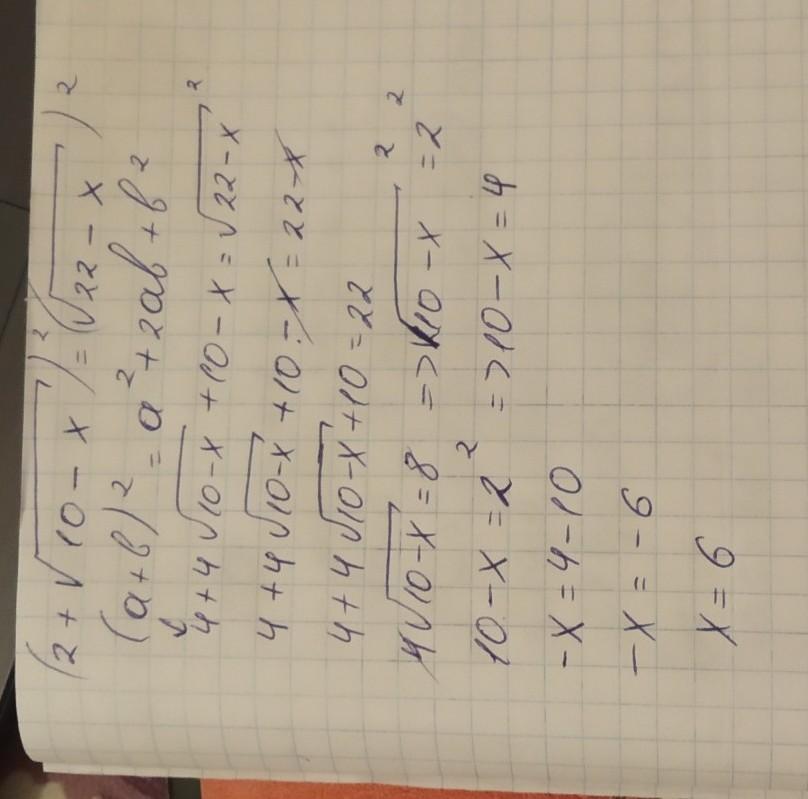 (2+√10-x)² = (√22-x)²
(a+b)² = a²+2ab+b²
4+4√10-x+10-x=√22-x²
4+4√10-x+10-x=22-x
4+4√10-x+10=22
4√10-x=8 => √10-x²=2²
10-x=2² => 10-x=4
-x=4-10
-x=-6
x=6